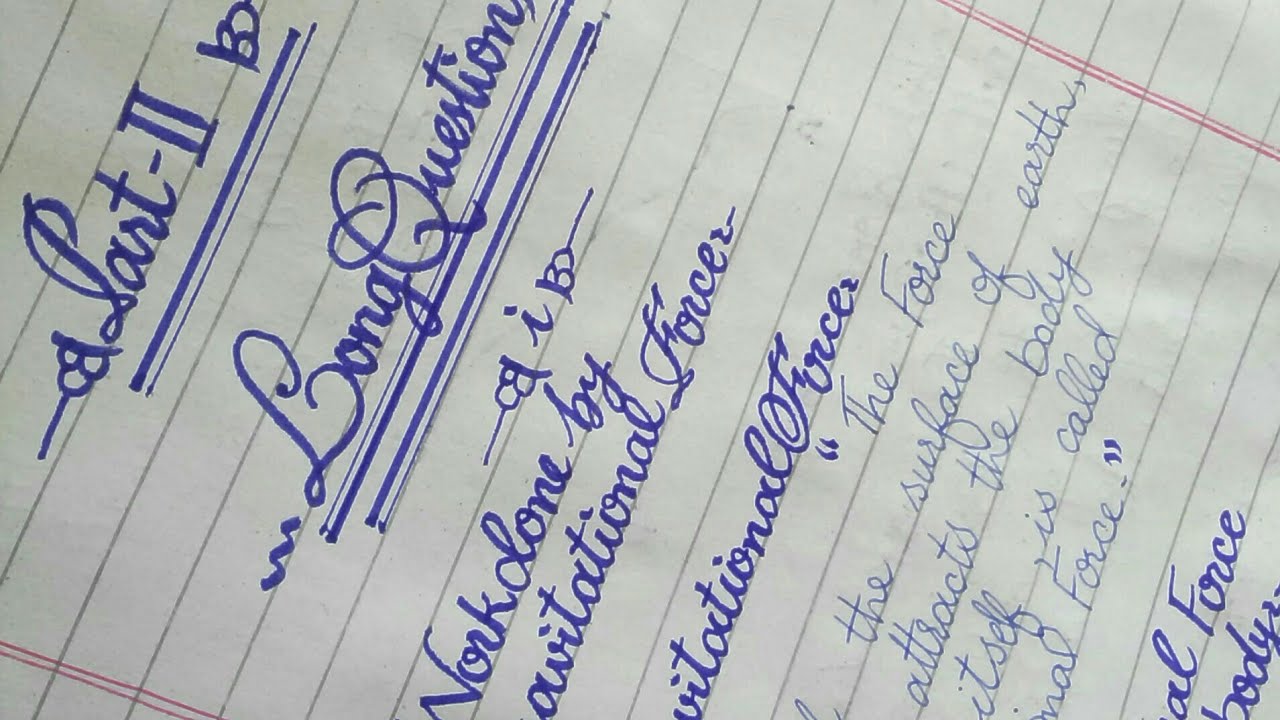 Part-II
Long Question,
i
Workdone by
avitational Force:-
vitational Force:-
"The Force
the surface of earth,
attracts the body
itself, is called
onal Force."
al Force
body:-